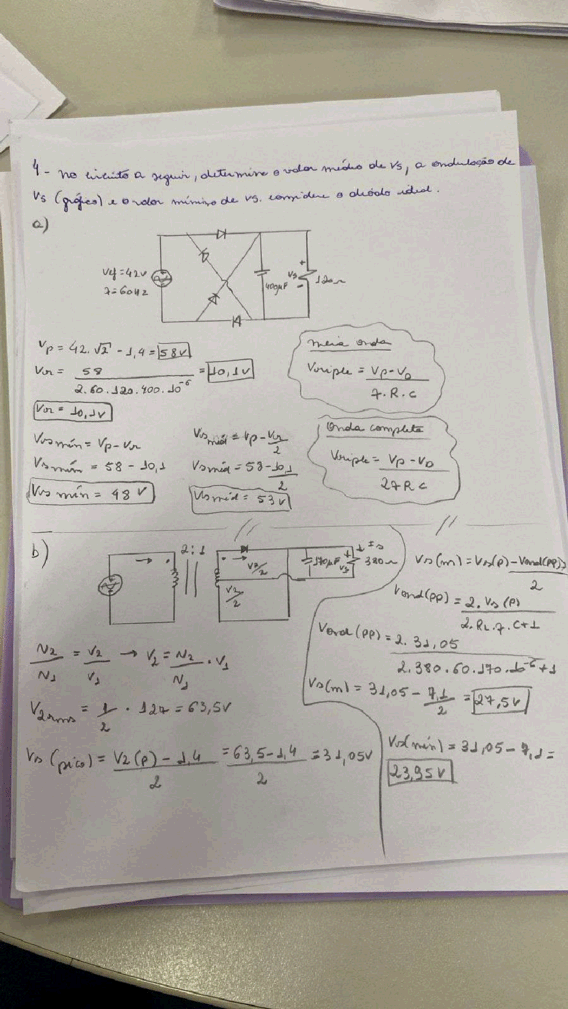 4 - no circuito a seguir, determine o valor médio de Vs, a ondulação de
Vs (gráfico) e o valor mínimo de Vs. considere o diodo ideal.
a)
Vef = 42V
f = 60Hz
400µF
+
Vs
-
120Ω
Vp = 42.√2 - 1,4 = 58V
Vor = 58 / 2.60.120.400.10^-6 = 10,1V
Vor = 10,1V
Vs mín = Vp - Vor
Vs mín = 58 - 10,1
Vs mín = 48V
Vs méd = Vp - Vor/2
Vs méd = 58 - 10,1/2
Vs méd = 53V
meia onda
Vriple = Vp - VD / f.R.C
Onda completa
Vriple = Vp - VD / 2fRC
b)
2:1
V2/2
V2/2
170µF
+
Vs
-
Is
380Ω
N2/N1 = V2/V1 → V2 = N2/N1 . V1
V2rms = 1/2 . 127 = 63,5V
Vs (pico) = V2(p) - 1,4 / 2 = 63,5 - 1,4 / 2 = 31,05V
Vs(m) = Vs(p) - Vond(pp) / 2
Vond(pp) = 2.Vs(p) / 2.RL.f.C+1
Vond(pp) = 2.31,05 / 2.380.60.170.10^-6+1
Vs(m) = 31,05 - 7,1/2 = 27,5V
Vs(mín) = 31,05 - 7,1 =
23,95V